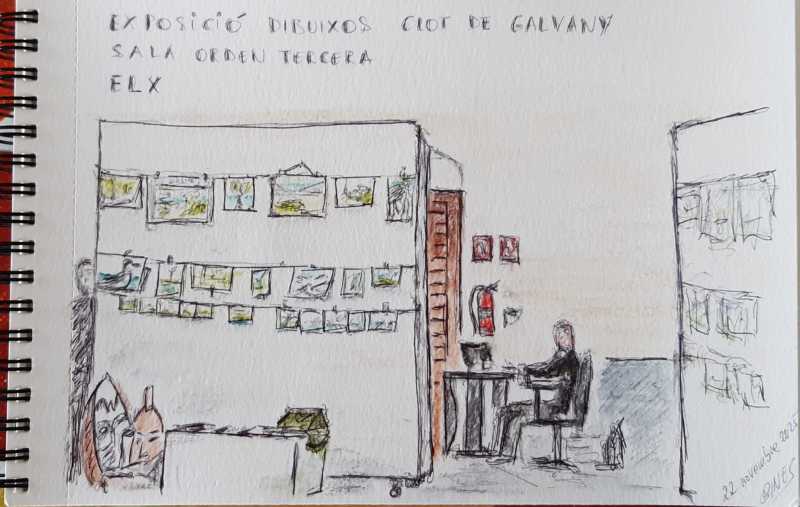 EXPOSICIÓ DIBUIXOS CLOT DE GALVANY
SALA ORDEN TERCERA
ELX
22 novembre 2025
@INES